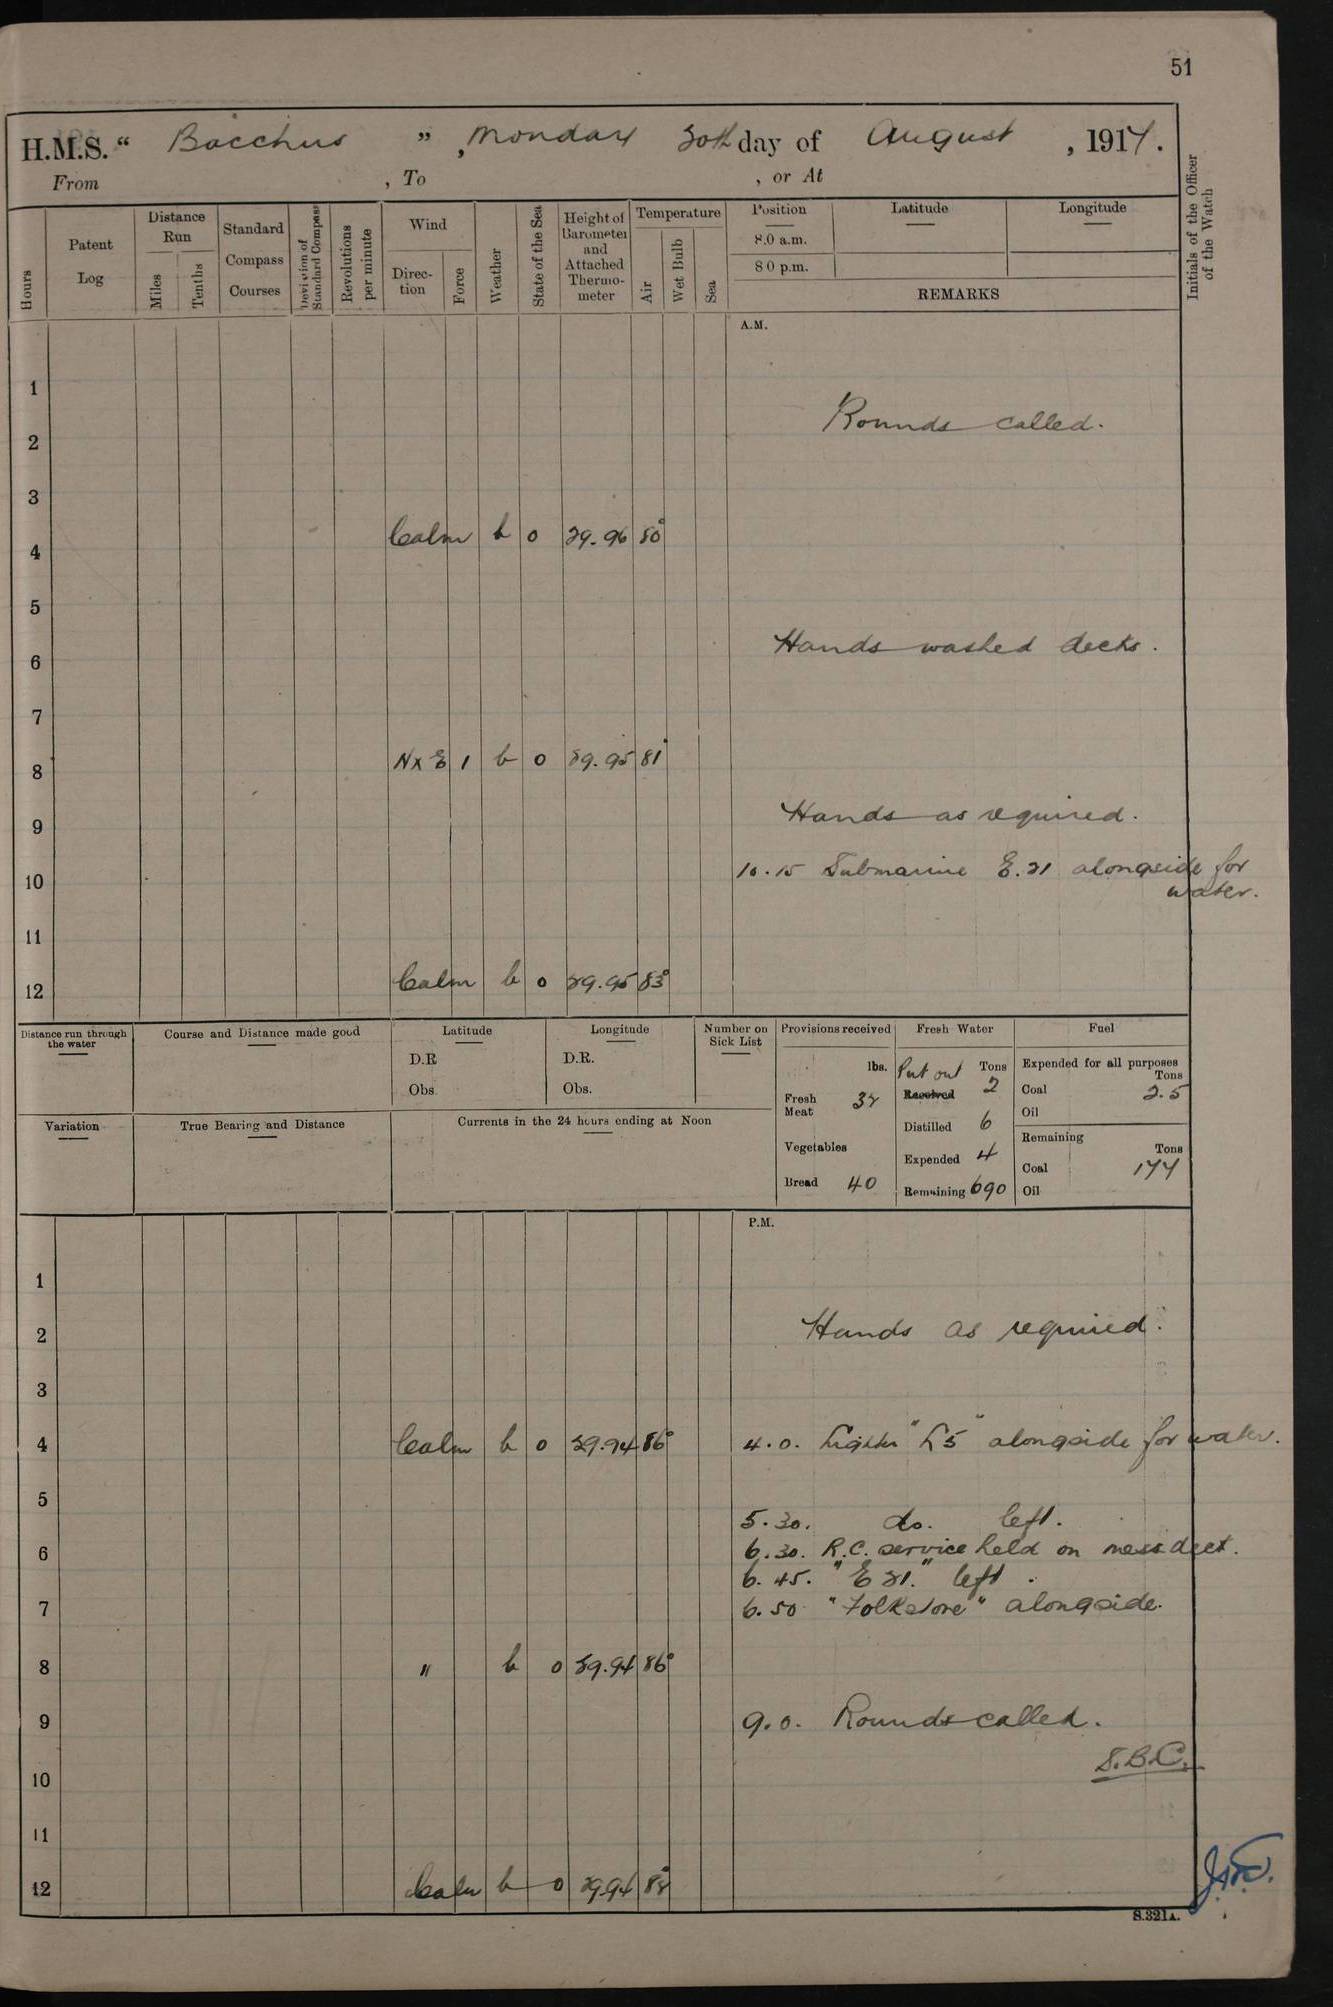 51
H.M.S. “ Bacchus ” , Monday 20th day of August , 1917.
From , To , or At
Hours
Patent Log
Distance Run
Miles
Tenths
Standard Compass Courses
Deviation of Standard Compass
Revolutions per minute
Wind
Direction
Force
Weather
State of the Sea
Height of Barometer and Attached Thermometer
Temperature
Air
Wet Bulb
Sea
Position
8.0 a.m.
8 0 p.m.
Latitude
Longitude
REMARKS
Initials of the Officer of the Watch
A.M.
1
Rounds called.
2
3
4 Calm b 0 29.96 80°
5
6 Hands washed decks.
7
8 N x E 1 b 0 29.95 81°
9 Hands as required.
10 10.15 Submarine E.21 alongside for
water.
11
12 Calm b 0 29.95 83°
Distance run through the water
Course and Distance made good
Latitude
D.R
Obs.
Longitude
D.R.
Obs.
Number on Sick List
Provisions received
lbs.
Fresh Meat 34
Vegetables
Bread 40
Fresh Water
Put out Tons
Received 2
Distilled 6
Expended 4
Remaining 690
Fuel
Expended for all purposes
Tons
Coal 2.5
Oil
Remaining
Tons
Coal 177
Oil
Variation
True Bearing and Distance
Currents in the 24 hours ending at Noon
P.M.
1
2 Hands as required.
3
4 Calm b 0 29.94 86° 4.0. Lighter "L5" alongside for water.
5
5.30. do. left.
6 6.30. R.C. service held on mess deck.
6.45. "E 21." left.
7 6.50 "Folkstone" alongside.
8 " b 0 29.94 86°
9 9.0. Rounds called.
S.B.C.
10
11
12 Calm b 0 29.94 84°
S.321A.